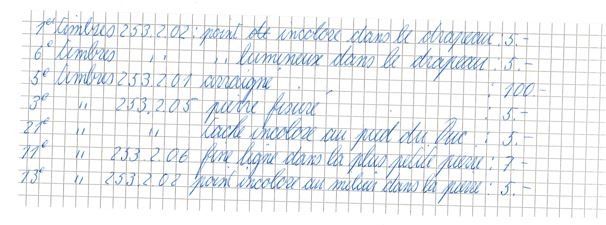 1e timbres 253.2.02: point incolore dans le drapeau: 5.-
6e timbres " " lumineux dans le drapeau: 5.-
5e timbres 253.2.01 araignée : 100.-
3e " 253.2.05 pierre fissuré : 5.-
21e " " tache incolore au pied du lac : 5.-
11e " 253.2.06 fine ligne dans la plus petite pierre : 7.-
13e " 253.2.02 point incolore au milieu dans la pierre : 5.-